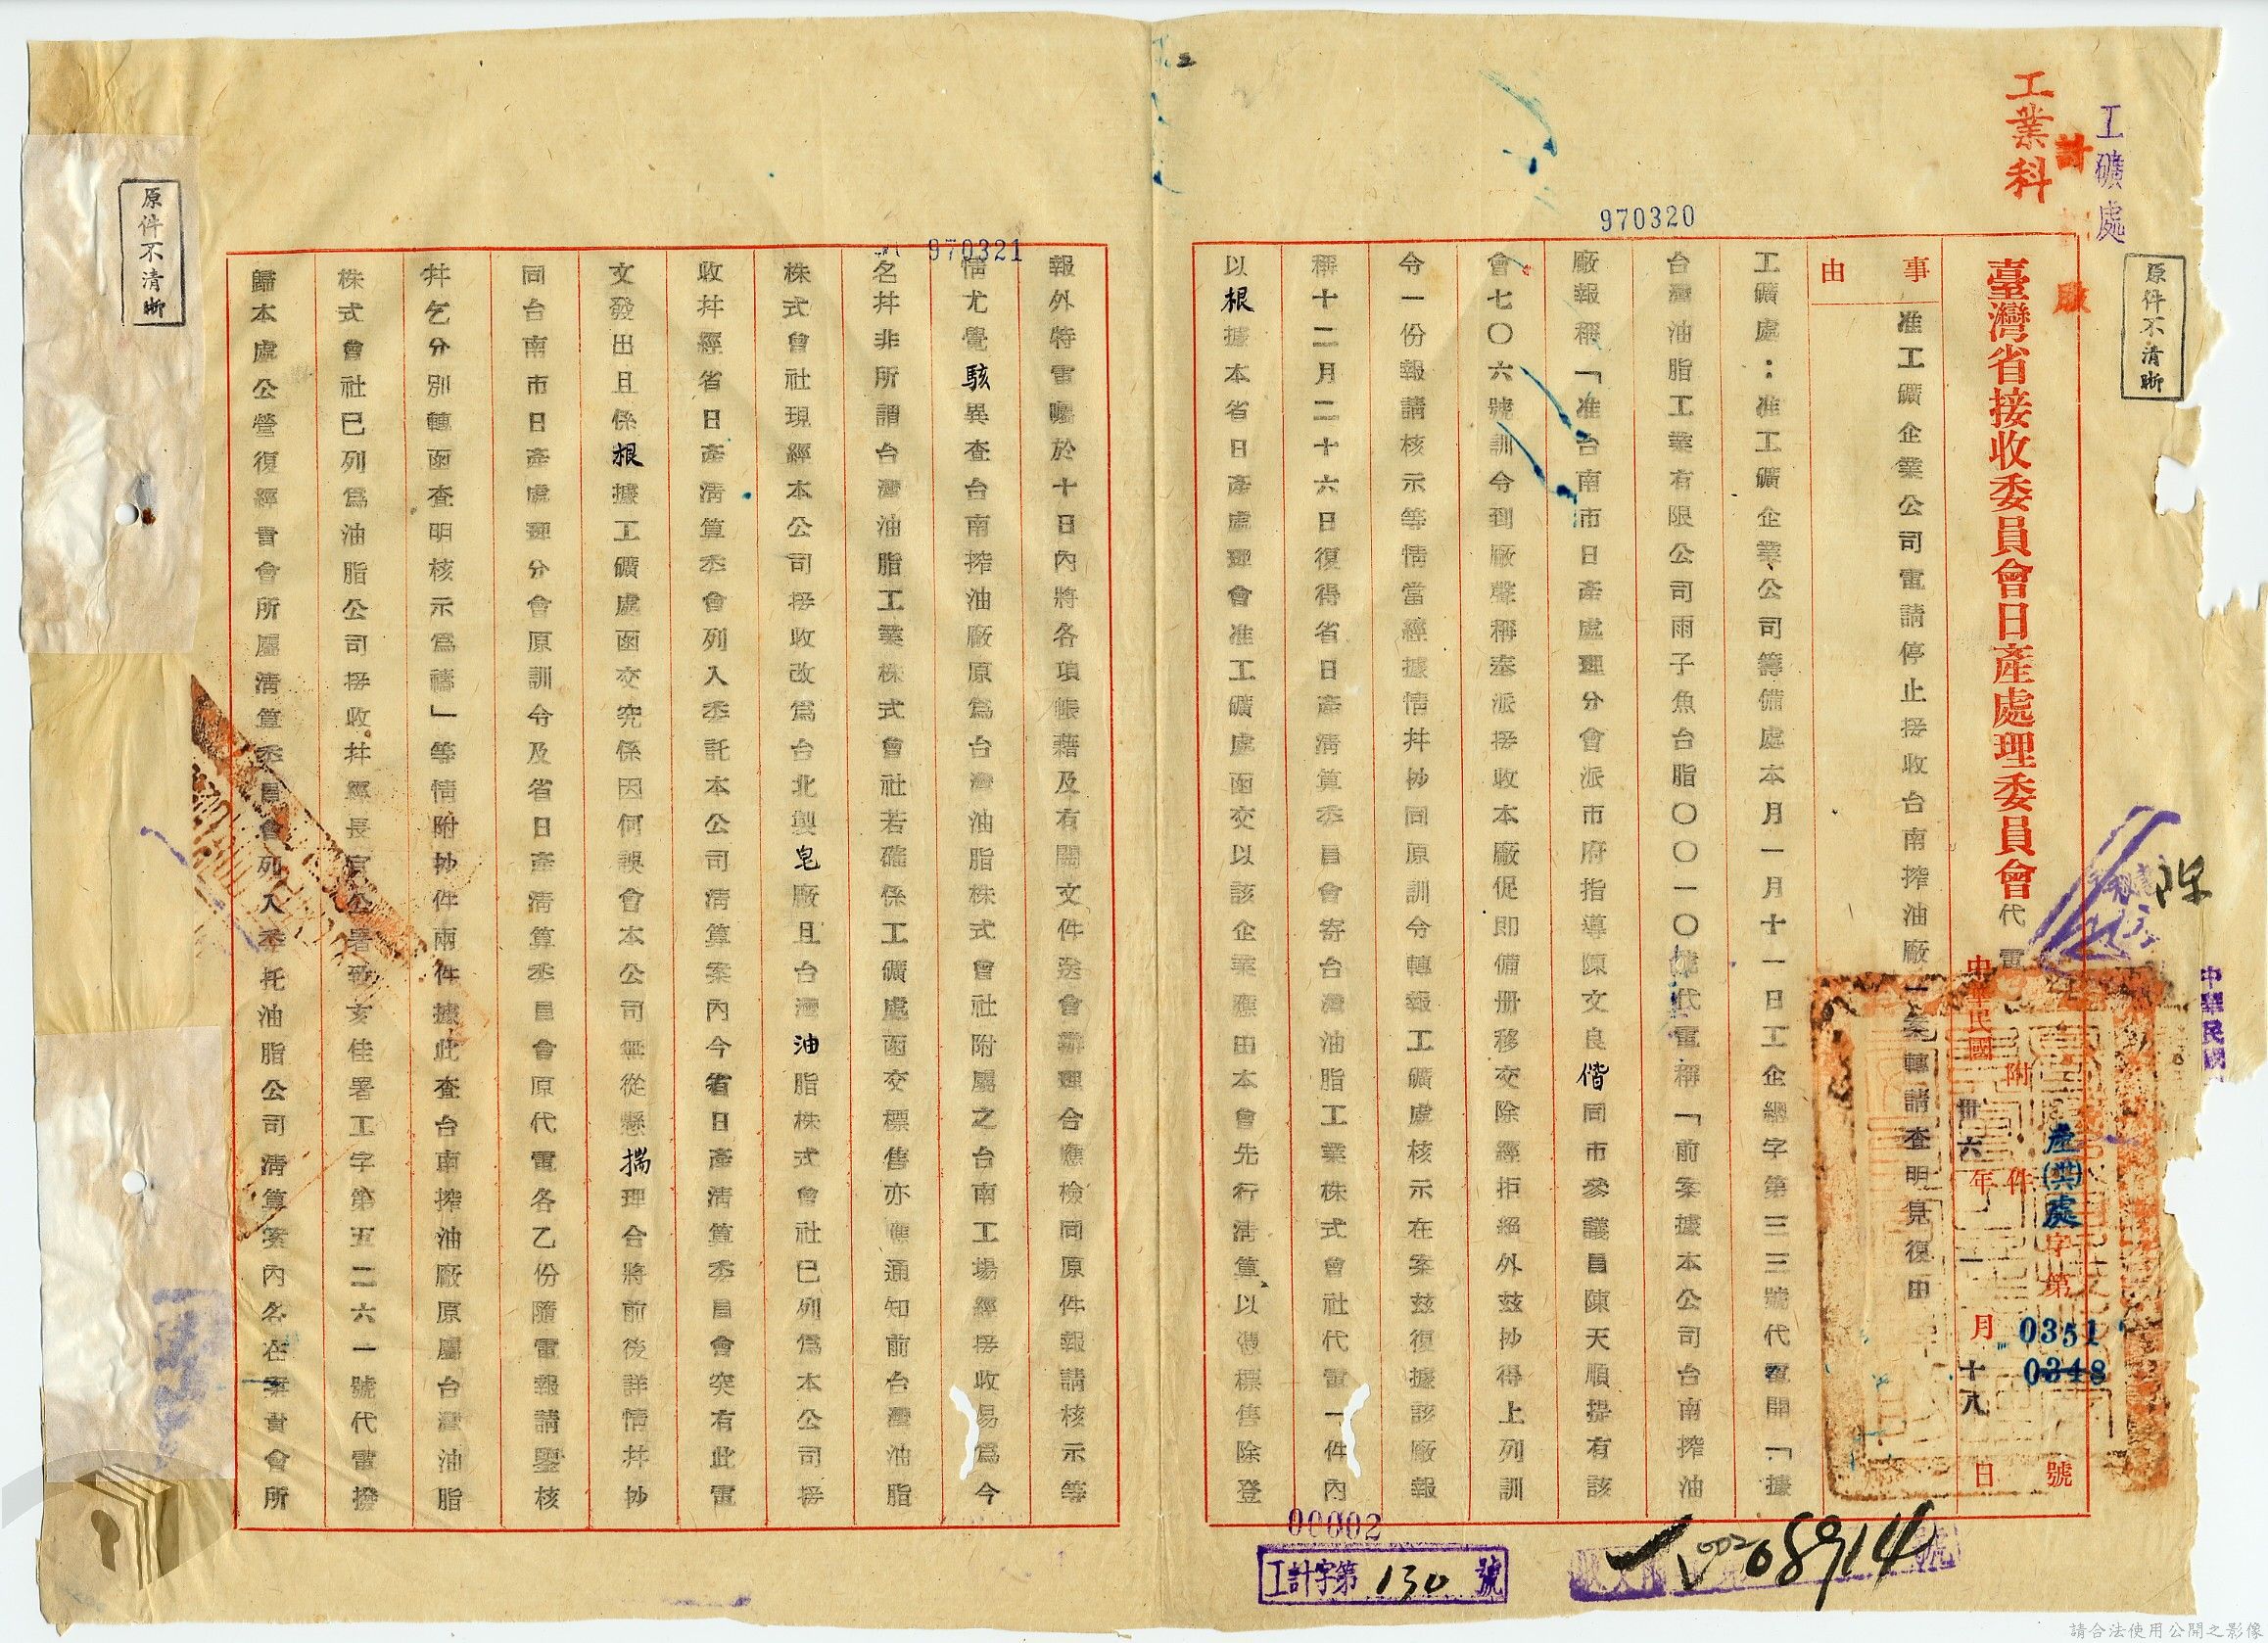 工礦處
工業科
計
原件不清晰
970320
臺灣省接收委員會日產處理委員會代電
產(卅)處字第0351 0348號
附件
中華民國卅六年一月十八日
事由
准工礦企業公司電請停止接收台南搾油廠一案轉請查明見復由
工礦處：准工礦企業公司籌備處本月一月十一日工企總字第三三號代電開「據
台灣油脂工業有限公司雨子魚台脂〇〇一〇號代電稱「前案據本公司台南搾油
廠報稱「准台南市日產處理分會派市府指導陳文良偕同市參議員陳天順提有該
會七〇六號訓令到廠聲稱奉派接收本廠促即備册移交除經拒絕外茲抄得上列訓
令一份報請核示等情當經據情幷抄同原訓令轉報工礦處核示在案茲復據該廠報
稱十二月二十六日復得省日產清算委員會寄台灣油脂工業株式會社代電一件內
以根據本省日產處理會准工礦處函交以該企業應由本會先行清算以憑標售除登
970321
報外特電囑於十日內將各項帳藉及有關文件送會辦理合應檢同原件報請核示等
情尤覺駭異查台南搾油廠原為台灣油脂株式會社附屬之台南工場經接收易爲今
名幷非所謂台灣油脂工業株式會社若確係工礦處函交標售亦應通知前台灣油脂
株式會社現經本公司接收改爲台北製皂廠且台灣油脂株式會社已列爲本公司接
收幷經省日產清算委會列入委託本公司清算案內今省日產清算委員會突有此電
文發出且係根據工礦處函交究係因何誤會本公司無從懸揣理合將前後詳情幷抄
同台南市日產處理分會原訓令及省日產清算委員會原代電各乙份隨電報請鑒核
幷乞分別轉函查明核示爲禱」等情附抄件兩件據此查台南搾油廠原屬台灣油脂
株式會社已列爲油脂公司接收幷經長官公署致亥佳署工字第五二六一號代電撥
歸本處公營復經貴會所屬清算委員會列入委托油脂公司清算案內各在案貴會所
原件不清晰
00002
工計字第130號
08914
中華民國
請合法使用公開之影像